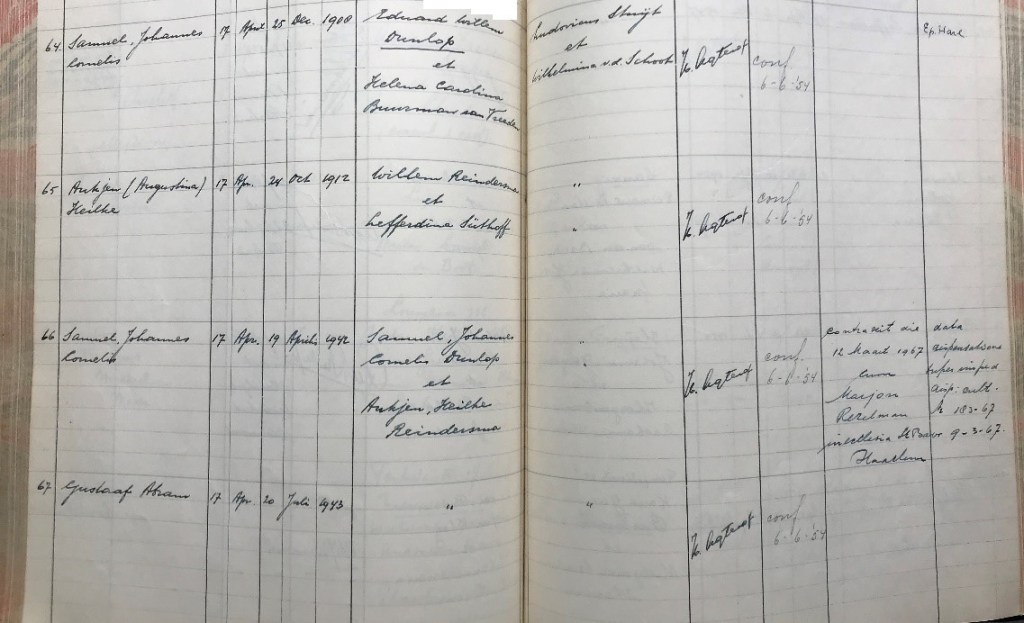 64. Samuel, Johannes 17 April 25 Dec. 1900 Eduard Willem Ludovicus Stuijt Ep. Harl
Cornelis Dunlop et conf
et Wilhelmina v.d. Schoot 6-6-'54
Helena Carolina
Buurman van Vreeden
65 Ankjen (Augustina) 17 Apr. 24 Oct 1912 Willem Reindersma " conf
Heilke et 6-6-'54
Lefferdina Süthoff "
66 Samuel, Johannes 17 Apr. 19 April 1942 Samuel, Johannes " contraxit die data
Cornelis Cornelis Dunlop conf 12 Maart 1967 dispensatione
et 6-6-'54 cum super imped
Ankjen, Heilke Marjon disp. cult.
Reindersma 183-67
in ecclesia St Bavo 9-3-67.
Haarlem
67 Gustaaf Abram 17 Apr. 20 Juli 1943 " " conf
6-6-'54